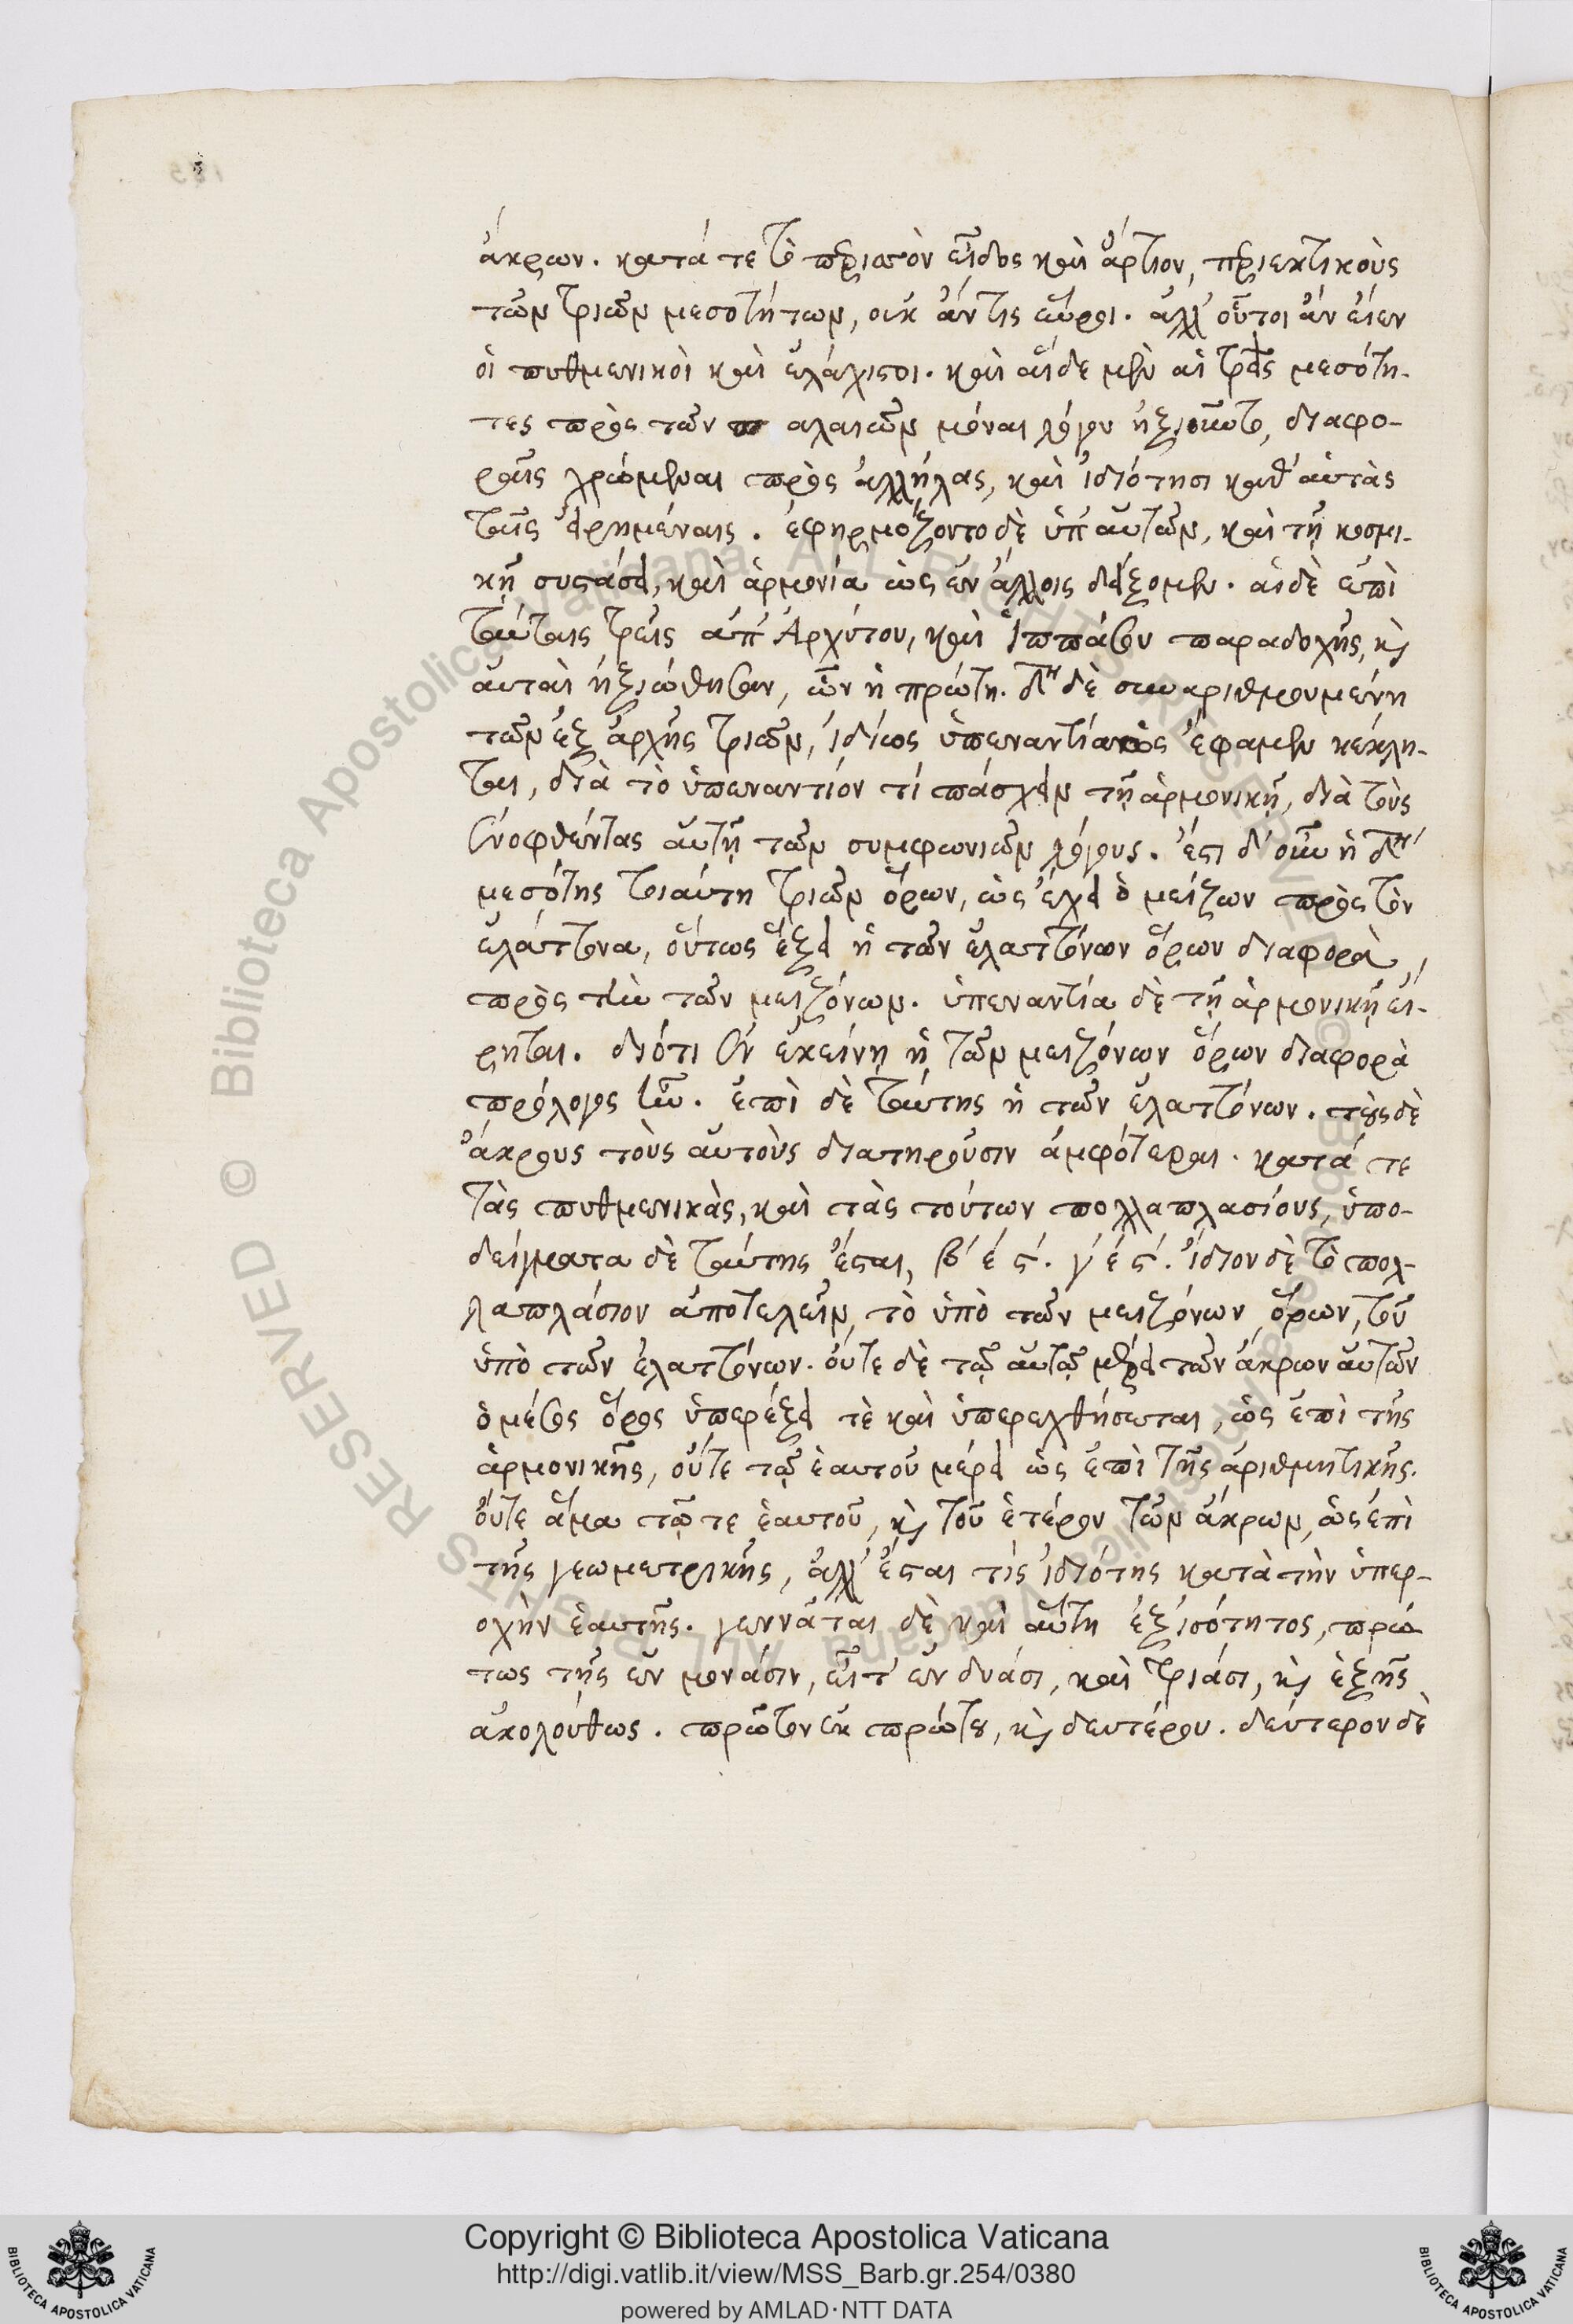 ἄκρων. κατά τε τὸ περισσὸν εἶδος καὶ ἄρτιον, περιεκτικοὺς
τῶν τριῶν μεσοτήτων, οὐκ ἄν τις εὕροι. ἀλλ' οὗτοι ἂν εἶεν
οἱ πυθμενικοὶ καὶ ἐλάχιστοι. καὶ αἵδε μὲν αἱ τρεῖς μεσότη-
τες πρὸς τῶν παλαιῶν μόναι λόγου ἠξιοῦντο, διαφο-
ραῖς χρώμεναι πρὸς ἀλλήλας, καὶ ἰδιότησι καθ' αὑτὰς
ταῖς εἰρημέναις. ἐφηρμόζοντο δὲ ὑπ' αὐτῶν, καὶ τῇ κοσμι-
κῇ συστάσει, καὶ ἁρμονία ὡς ἐν ἄλλοις δείξομεν. αἱ δὲ ἐπὶ
ταύταις τρεῖς ἀπ' Ἀρχύτου, καὶ Ἱππάσου παραδοχῆς, καὶ
αὐταὶ ἠξιώθησαν, ὧν ἡ πρώτη. δ<sup>η</sup> δὲ συναριθμουμένη
τῶν ἐξ ἀρχῆς τριῶν, ἰδίως ὑπεναντία ὡς ἔφαμεν κέκλη-
ται, διὰ τὸ ὑπεναντίον τί πάσχειν τῇ ἁρμονικῇ, διὰ τοὺς
ἐνοφθέντας αὐτῇ τῶν συμφωνιῶν λόγους. ἔστι δ' οὖν ἡ δ<sup>η</sup>
μεσότης τοιαύτη τριῶν ὅρων, ὡς ἔχει ὁ μείζων πρὸς τὸν
ἐλάττονα, οὕτως ἕξει ἡ τῶν ἐλαττόνων ὅρων διαφορὰ,
πρὸς τὴν τῶν μειζόνων. ὑπεναντία δὲ τῇ ἁρμονικῇ εἴ-
ρηται. διότι ἐν ἐκείνῃ ἡ τῶν μειζόνων ὅρων διαφορὰ
πρόλογος ἦν. ἐπὶ δὲ ταύτης ἡ τῶν ἐλαττόνων. τοὺς δὲ
ἄκρους τοὺς αὐτοὺς διατηροῦσιν ἀμφότεραι. κατά τε
τὰς πυθμενικὰς, καὶ τὰς τούτων πολλαπλασίους, ὑπο-
δείγματα δὲ ταύτης ἔσται, β' ε' ς'. γ' ε' ς'. ἴδιον δὲ τὸ πολ-
λαπλάσιον ἀποτελεῖν, τὸ ὑπὸ τῶν μειζόνων ὅρων, τοῦ
ὑπὸ τῶν ἐλαττόνων. οὔτε δὲ τῷ αὐτῷ μέρει τῶν ἄκρων αὐτῶν
ὁ μέσος ὅρος ὑπερέξει τὲ καὶ ὑπερεχθήσεται, ὡς ἐπὶ τῆς
ἁρμονικῆς, οὔτε τῷ ἑαυτοῦ μέρει ὡς ἐπὶ τῆς ἀριθμητικῆς.
οὔτε ἅμα τῷ τε ἑαυτοῦ, καὶ τοῦ ἑτέρου τῶν ἄκρων, ὡς ἐπὶ
τῆς γεωμετρικῆς, ἀλλ' ἔσται τίς ἰδιότης κατὰ τὴν ὑπερ-
οχὴν ἑαυτῆς. γεννᾶται δὲ καὶ αὕτη ἐξ ἰσότητος, πρώ
τως τῆς ἐν μονάσιν, εἶτ' ἐν δυάσι, καὶ τριάσι, καὶ ἑξῆς
ἀκολούθως. πρῶτον ἐκ πρώτου, καὶ δευτέρου. δεύτερον δὲ
Copyright © Biblioteca Apostolica Vaticana
http://digi.vatlib.it/view/MSS_Barb.gr.254/0380
powered by AMLAD·NTT DATA